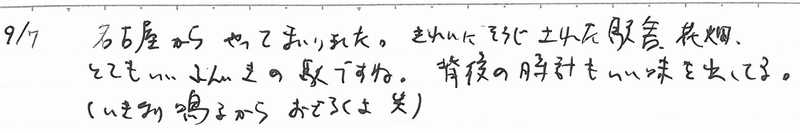 9/7 名古屋からやってまいりました。きれいにそうじされた駅舎、花畑、
とてもいいふんいきの駅ですね。背後の時計もいい味を出してる。
(いきなり鳴るからおどろくよ 笑)